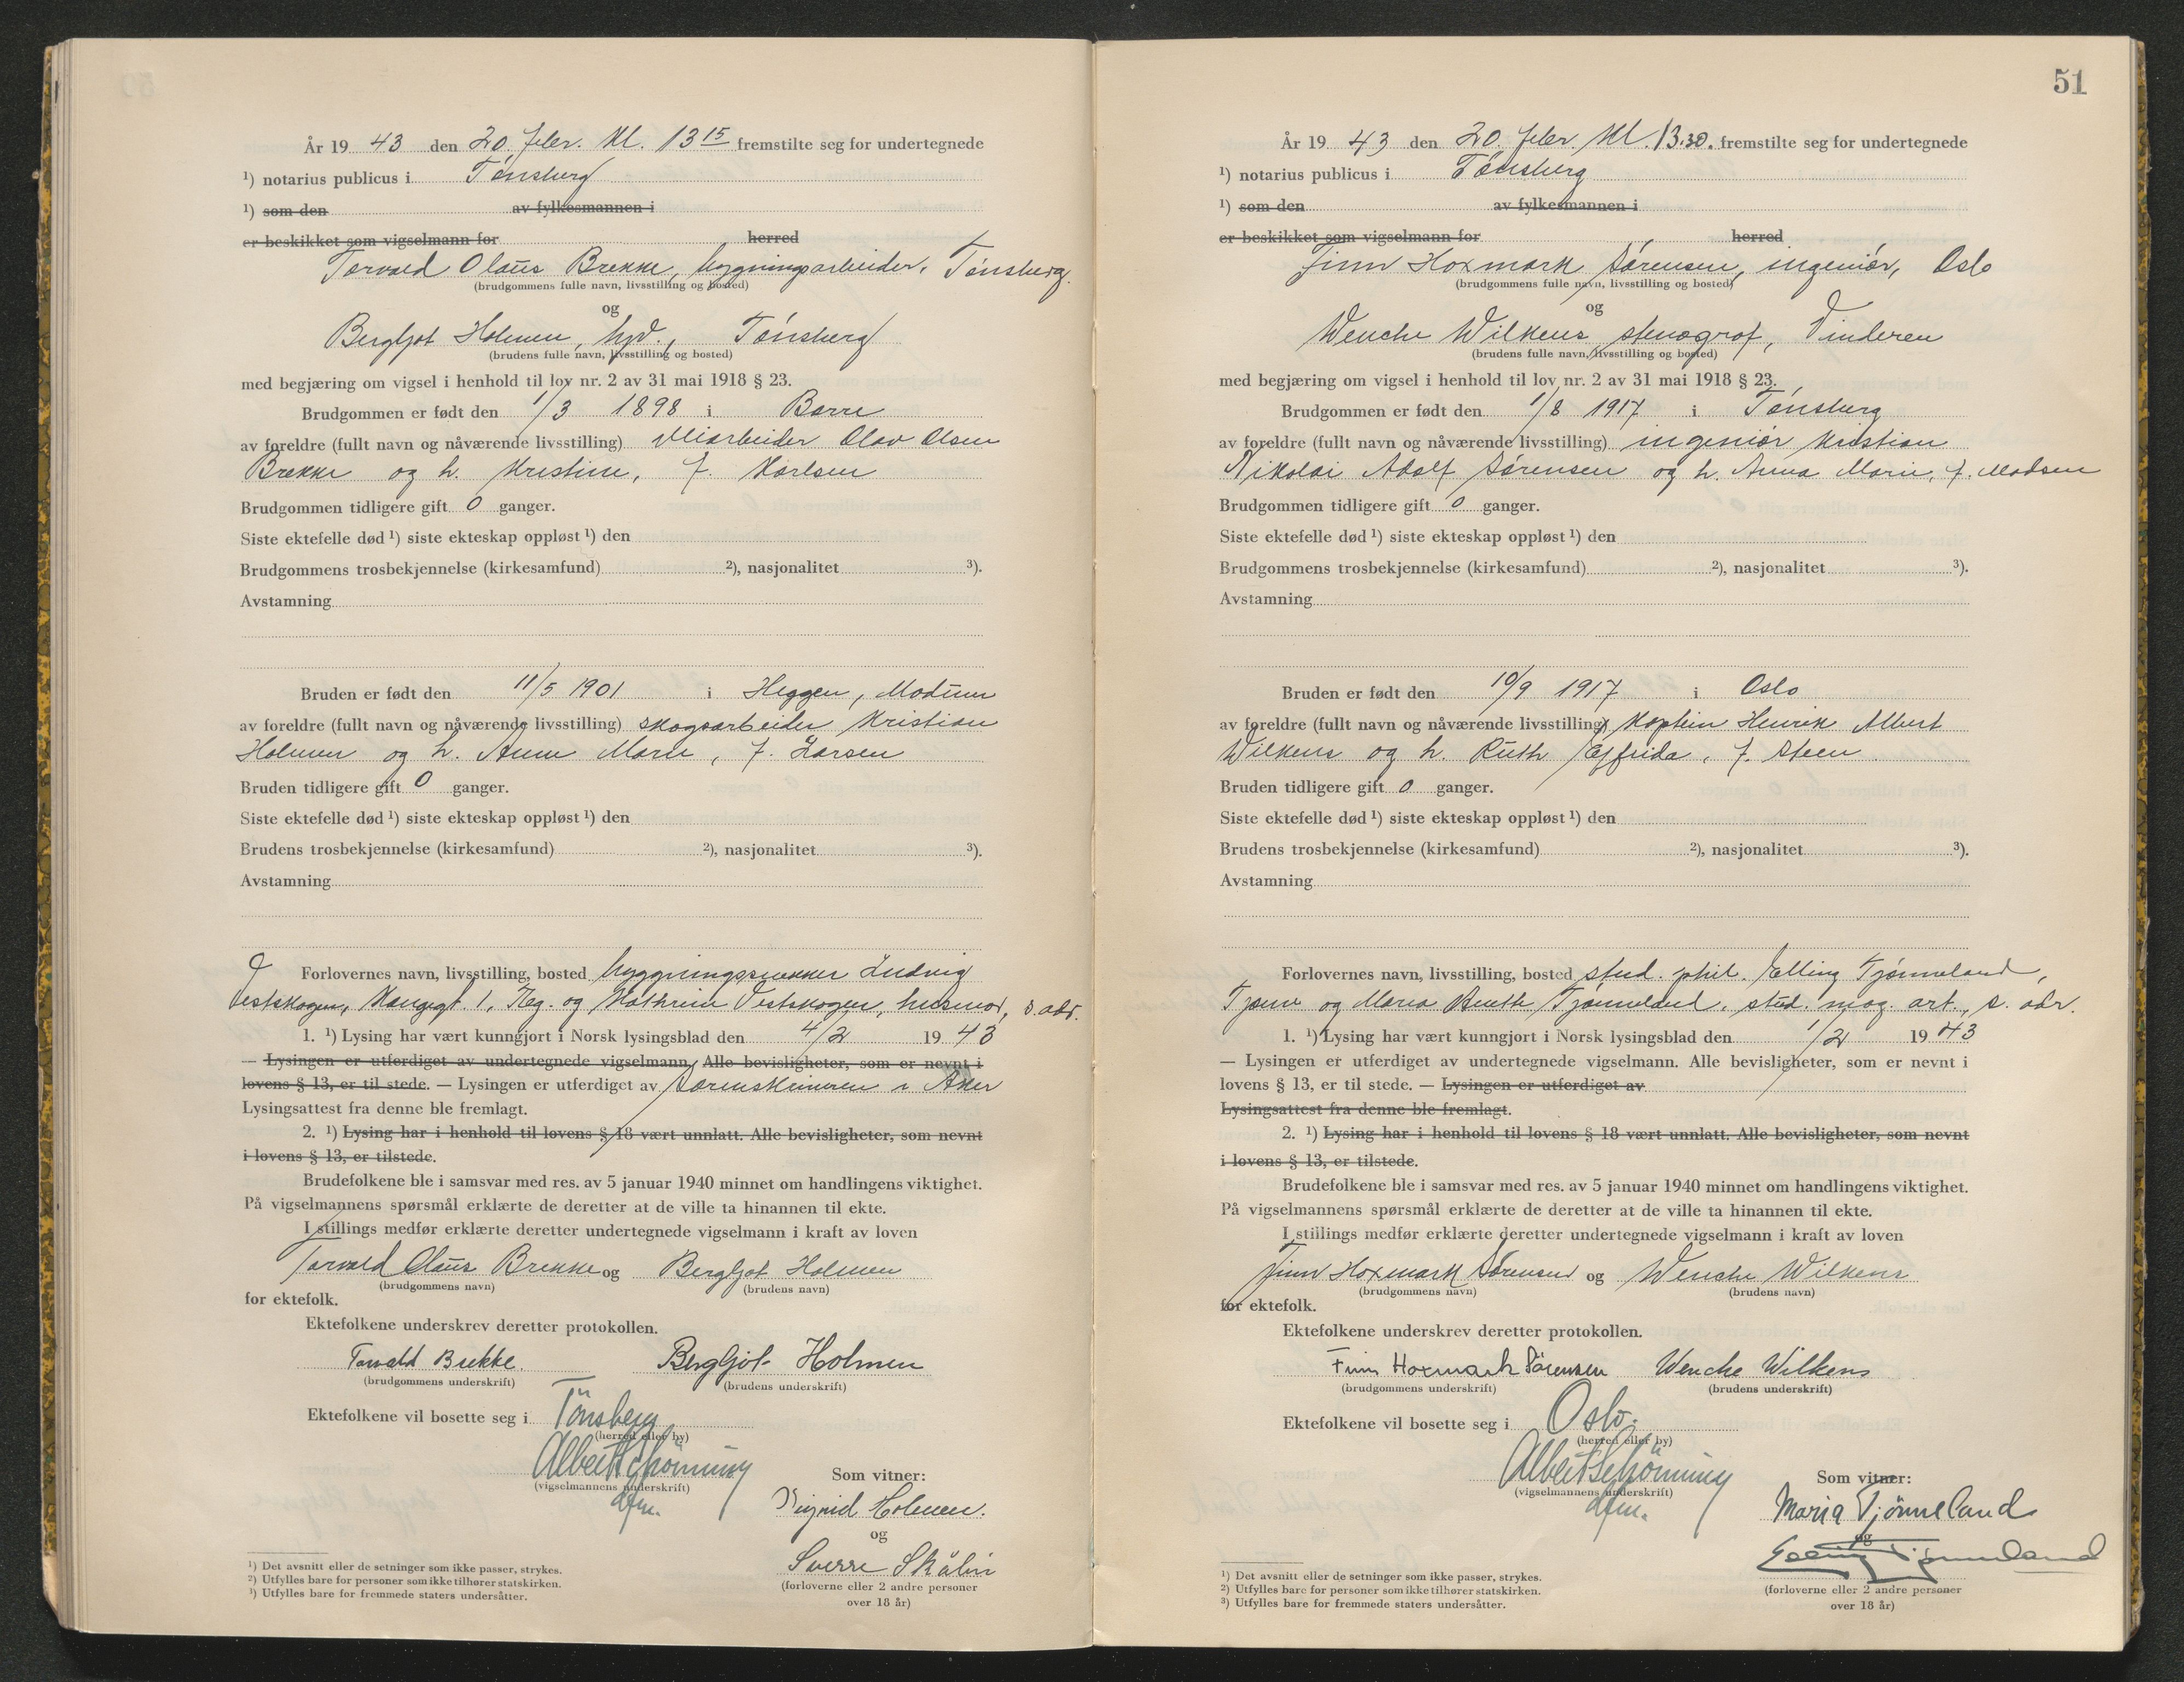 År 19 43 den 20. febr. kl. 13 15 fremstilte seg for undertegnede
1) notarius publicus i Tønsberg
1) som den av fylkesmannen i
er beskikket som vigselmann for herred
Torvald Olaus Brekke, bygningsarbeider, Tønsberg.
(brudgommens fulle navn, livsstilling og bosted)
og
Bergljot Holmen, hjd., Tønsberg
(brudens fulle navn, livsstilling og bosted)
med begjæring om vigsel i henhold til lov nr. 2 av 31 mai 1918 § 23.
Brudgommen er født den 1/3 1898 i Borre
av foreldre (fullt navn og nåværende livsstilling) Veiarbeider Olav Olsen
Brekke og h. Kristine, f. Karlsen
Brudgommen tidligere gift 0 ganger.
Siste ektefelle død 1) siste ekteskap oppløst 1) den
Brudgommens trosbekjennelse (kirkesamfund) 2), nasjonalitet 3).
Avstamning
Bruden er født den 11/5 1901 i Heggen, Modum
av foreldre (fullt navn og nåværende livsstilling) skogsarbeider Kristian
Holmen og h. Anne Marie, f. Larsen
Bruden tidligere gift 0 ganger.
Siste ektefelle død 1) siste ekteskap oppløst 1) den
Brudens trosbekjennelse (kirkesamfund) 2), nasjonalitet 3).
Avstamning
Forlovernes navn, livsstilling, bosted byggningssnekker Ludvig
Vestskogen, Kongegt. 1, Tbg. og Kathrine Vestskogen, husmor, s. adr.
1. 1) Lysing har vært kunngjort i Norsk lysingsblad den 4/2 19 43
— Lysingen er utferdiget av undertegnede vigselmann. Alle bevisligheter, som er nevnt i
lovens § 13, er til stede. — Lysingen er utferdiget av Sorenskriveren i Aker
Lysingsattest fra denne ble fremlagt.
2. 1) Lysing har i henhold til lovens § 18 vært unnlatt. Alle bevisligheter, som nevnt
i lovens § 13, er tilstede.
Brudefolkene ble i samsvar med res. av 5 januar 1940 minnet om handlingens viktighet.
På vigselmannens spørsmål erklærte de deretter at de ville ta hinannen til ekte.
I stillings medfør erklærte deretter undertegnede vigselmann i kraft av loven
Torvald Olaus Brekke og Bergljot Holmen
(brudgommens navn) (brudens navn)
for ektefolk.
Ektefolkene underskrev deretter protokollen.
Torvald Brekke. Bergljot Holmen
(brudgommens underskrift) (brudens underskrift)
Ektefolkene vil bosette seg i Tönsberg
(herred eller by)
Albert Schönning
(vigselmannens underskrift)
dfm.
Som vitner:
Sigrid Holmen.
og
Sverre Skålin
(forloverne eller 2 andre personer
over 18 år)
1) Det avsnitt eller de setninger som ikke passer, strykes.
2) Utfylles bare for personer som ikke tilhører statskirken.
3) Utfylles bare for fremmede staters undersåtter.
51
År 19 43 den 20. febr. kl. 13.30. fremstilte seg for undertegnede
1) notarius publicus i Tønsberg
1) som den av fylkesmannen i
er beskikket som vigselmann for herred
Finn Hoxmark Sørensen, ingeniør, Oslo
(brudgommens fulle navn, livsstilling og bosted)
og
Wenche Wilkens, stenograf, Vinderen
(brudens fulle navn, livsstilling og bosted)
med begjæring om vigsel i henhold til lov nr. 2 av 31 mai 1918 § 23.
Brudgommen er født den 1/8 1917 i Tønsberg
av foreldre (fullt navn og nåværende livsstilling) ingeniør Kristian
Nikolai Adolf Sørensen og h. Anna Marie, f. Madsen
Brudgommen tidligere gift 0 ganger.
Siste ektefelle død 1) siste ekteskap oppløst 1) den
Brudgommens trosbekjennelse (kirkesamfund) 2), nasjonalitet 3).
Avstamning
Bruden er født den 10/9 1917 i Oslo
av foreldre (fullt navn og nåværende livsstilling) Kaptein Henrik Albert
Wilkens og h. Ruth Effrida, f. Steen.
Bruden tidligere gift 0 ganger.
Siste ektefelle død 1) siste ekteskap oppløst 1) den
Brudens trosbekjennelse (kirkesamfund) 2), nasjonalitet 3).
Avstamning
Forlovernes navn, livsstilling, bosted stud. phil. Elling Tjønneland,
Tjøme og Maria Tjønneland, stud. mag. art., s. adr.
1. 1) Lysing har vært kunngjort i Norsk lysingsblad den 1/2 19 43
— Lysingen er utferdiget av undertegnede vigselmann. Alle bevisligheter, som er nevnt i
lovens § 13, er til stede. — Lysingen er utferdiget av
Lysingsattest fra denne ble fremlagt.
2. 1) Lysing har i henhold til lovens § 18 vært unnlatt. Alle bevisligheter, som nevnt
i lovens § 13, er tilstede.
Brudefolkene ble i samsvar med res. av 5 januar 1940 minnet om handlingens viktighet.
På vigselmannens spørsmål erklærte de deretter at de ville ta hinannen til ekte.
I stillings medfør erklærte deretter undertegnede vigselmann i kraft av loven
Finn Hoxmark Sørensen og Wenche Wilkens
(brudgommens navn) (brudens navn)
for ektefolk.
Ektefolkene underskrev deretter protokollen.
Finn Hoxmark Sörensen Wenche Wilkens
(brudgommens underskrift) (brudens underskrift)
Ektefolkene vil bosette seg i Oslo.
(herred eller by)
Albert Schönning
(vigselmannens underskrift)
dfm.
Som vitner:
Maria Tjönneland
og
Elling Tjønneland
(forloverne eller 2 andre personer
over 18 år)
1) Det avsnitt eller de setninger som ikke passer, strykes.
2) Utfylles bare for personer som ikke tilhører statskirken.
3) Utfylles bare for fremmede staters undersåtter.